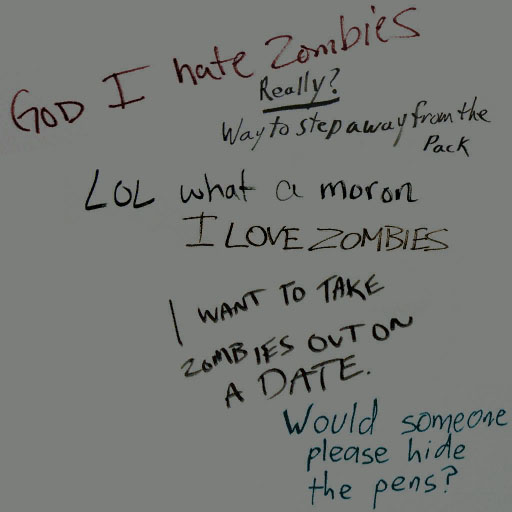 GOD I hate Zombies
Really?
Way to step away from the
Pack
LOL what a moron
I LOVE ZOMBIES
I WANT TO TAKE
ZOMBIES OUT ON
A DATE.
Would someone
please hide
the pens?